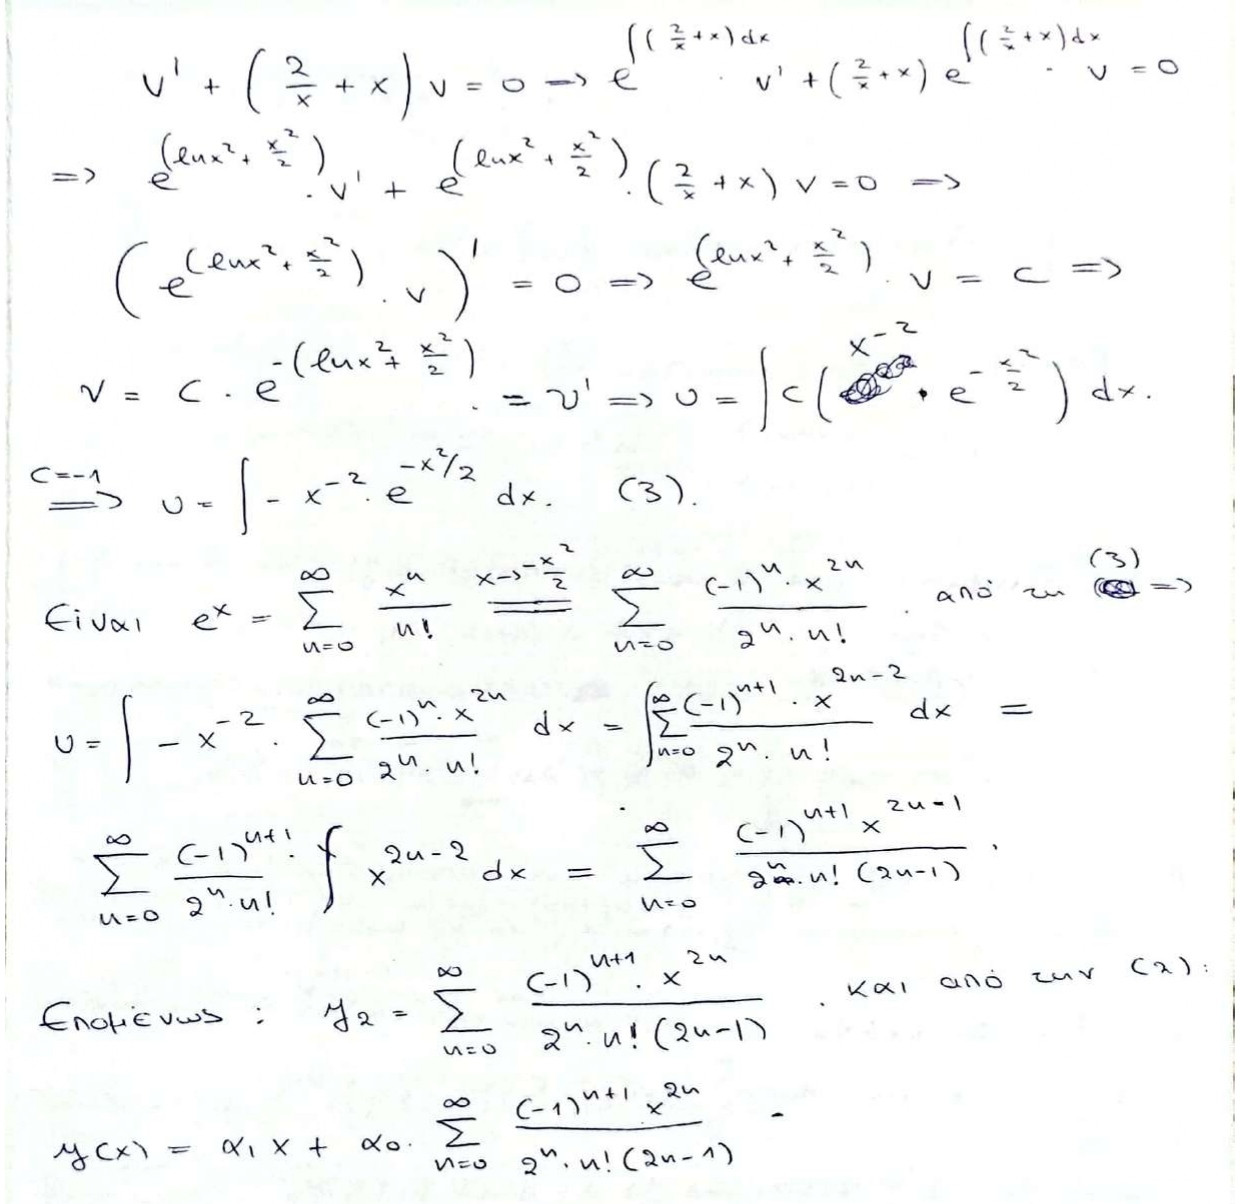 v' + (2/x + x) v = 0 → e^{∫(2/x + x)dx} · v' + (2/x + x) e^{∫(2/x + x)dx} · v = 0
=> e^{(lnx² + x²/2)} · v' + e^{(lnx² + x²/2)} · (2/x + x) v = 0 =>
(e^{(lnx² + x²/2)} · v)' = 0 => e^{(lnx² + x²/2)} · v = c =>
v = c · e^{-(lnx² + x²/2)} · = υ' => υ = ∫ c (x^{-2} · e^{-x²/2}) dx.
c=-1 => υ = ∫ - x^{-2} · e^{-x²/2} dx. (3).
Είναι e^x = ∑_{n=0}^{∞} x^n/n! x→-x²/2 = ∑_{n=0}^{∞} (-1)^n x^{2n}/(2^n · n!) . από τη (3) =>
υ = ∫ - x^{-2} · ∑_{n=0}^{∞} (-1)^n · x^{2n}/(2^n · n!) dx = ∫ ∑_{n=0}^{∞} (-1)^{n+1} · x^{2n-2}/(2^n · n!) dx =
∑_{n=0}^{∞} (-1)^{n+1}/(2^n · n!) · ∫ x^{2n-2} dx = ∑_{n=0}^{∞} (-1)^{n+1} x^{2n-1}/(2^n · n! (2n-1)) .
Επομένως : y_2 = ∑_{n=0}^{∞} (-1)^{n+1} · x^{2n}/(2^n · n! (2n-1)) . και από την (2) :
y(x) = α_1 x + α_0 · ∑_{n=0}^{∞} (-1)^{n+1} x^{2n}/(2^n · n! (2n-1)) -